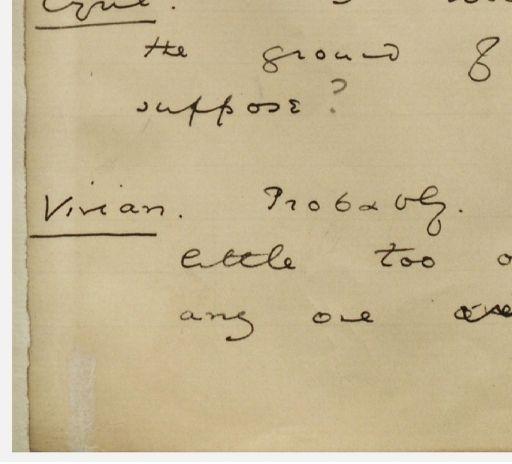 Cyril.
the ground of
suppose?
Vivian. Probably.
little too
any one